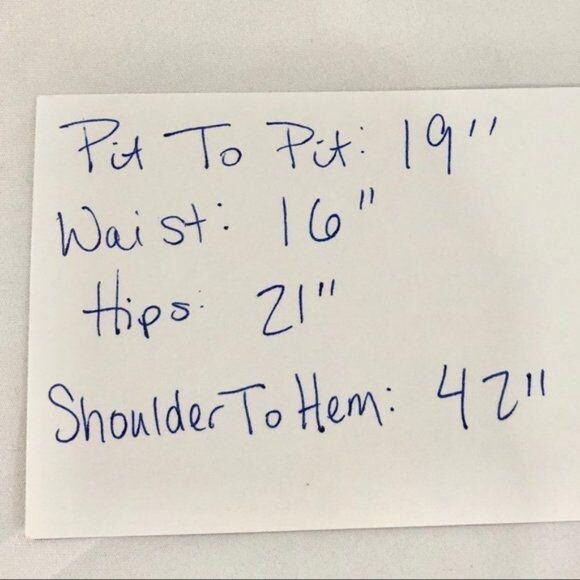 Pit To Pit: 19"
Waist: 16"
Hips: 21"
Shoulder To Hem: 42"